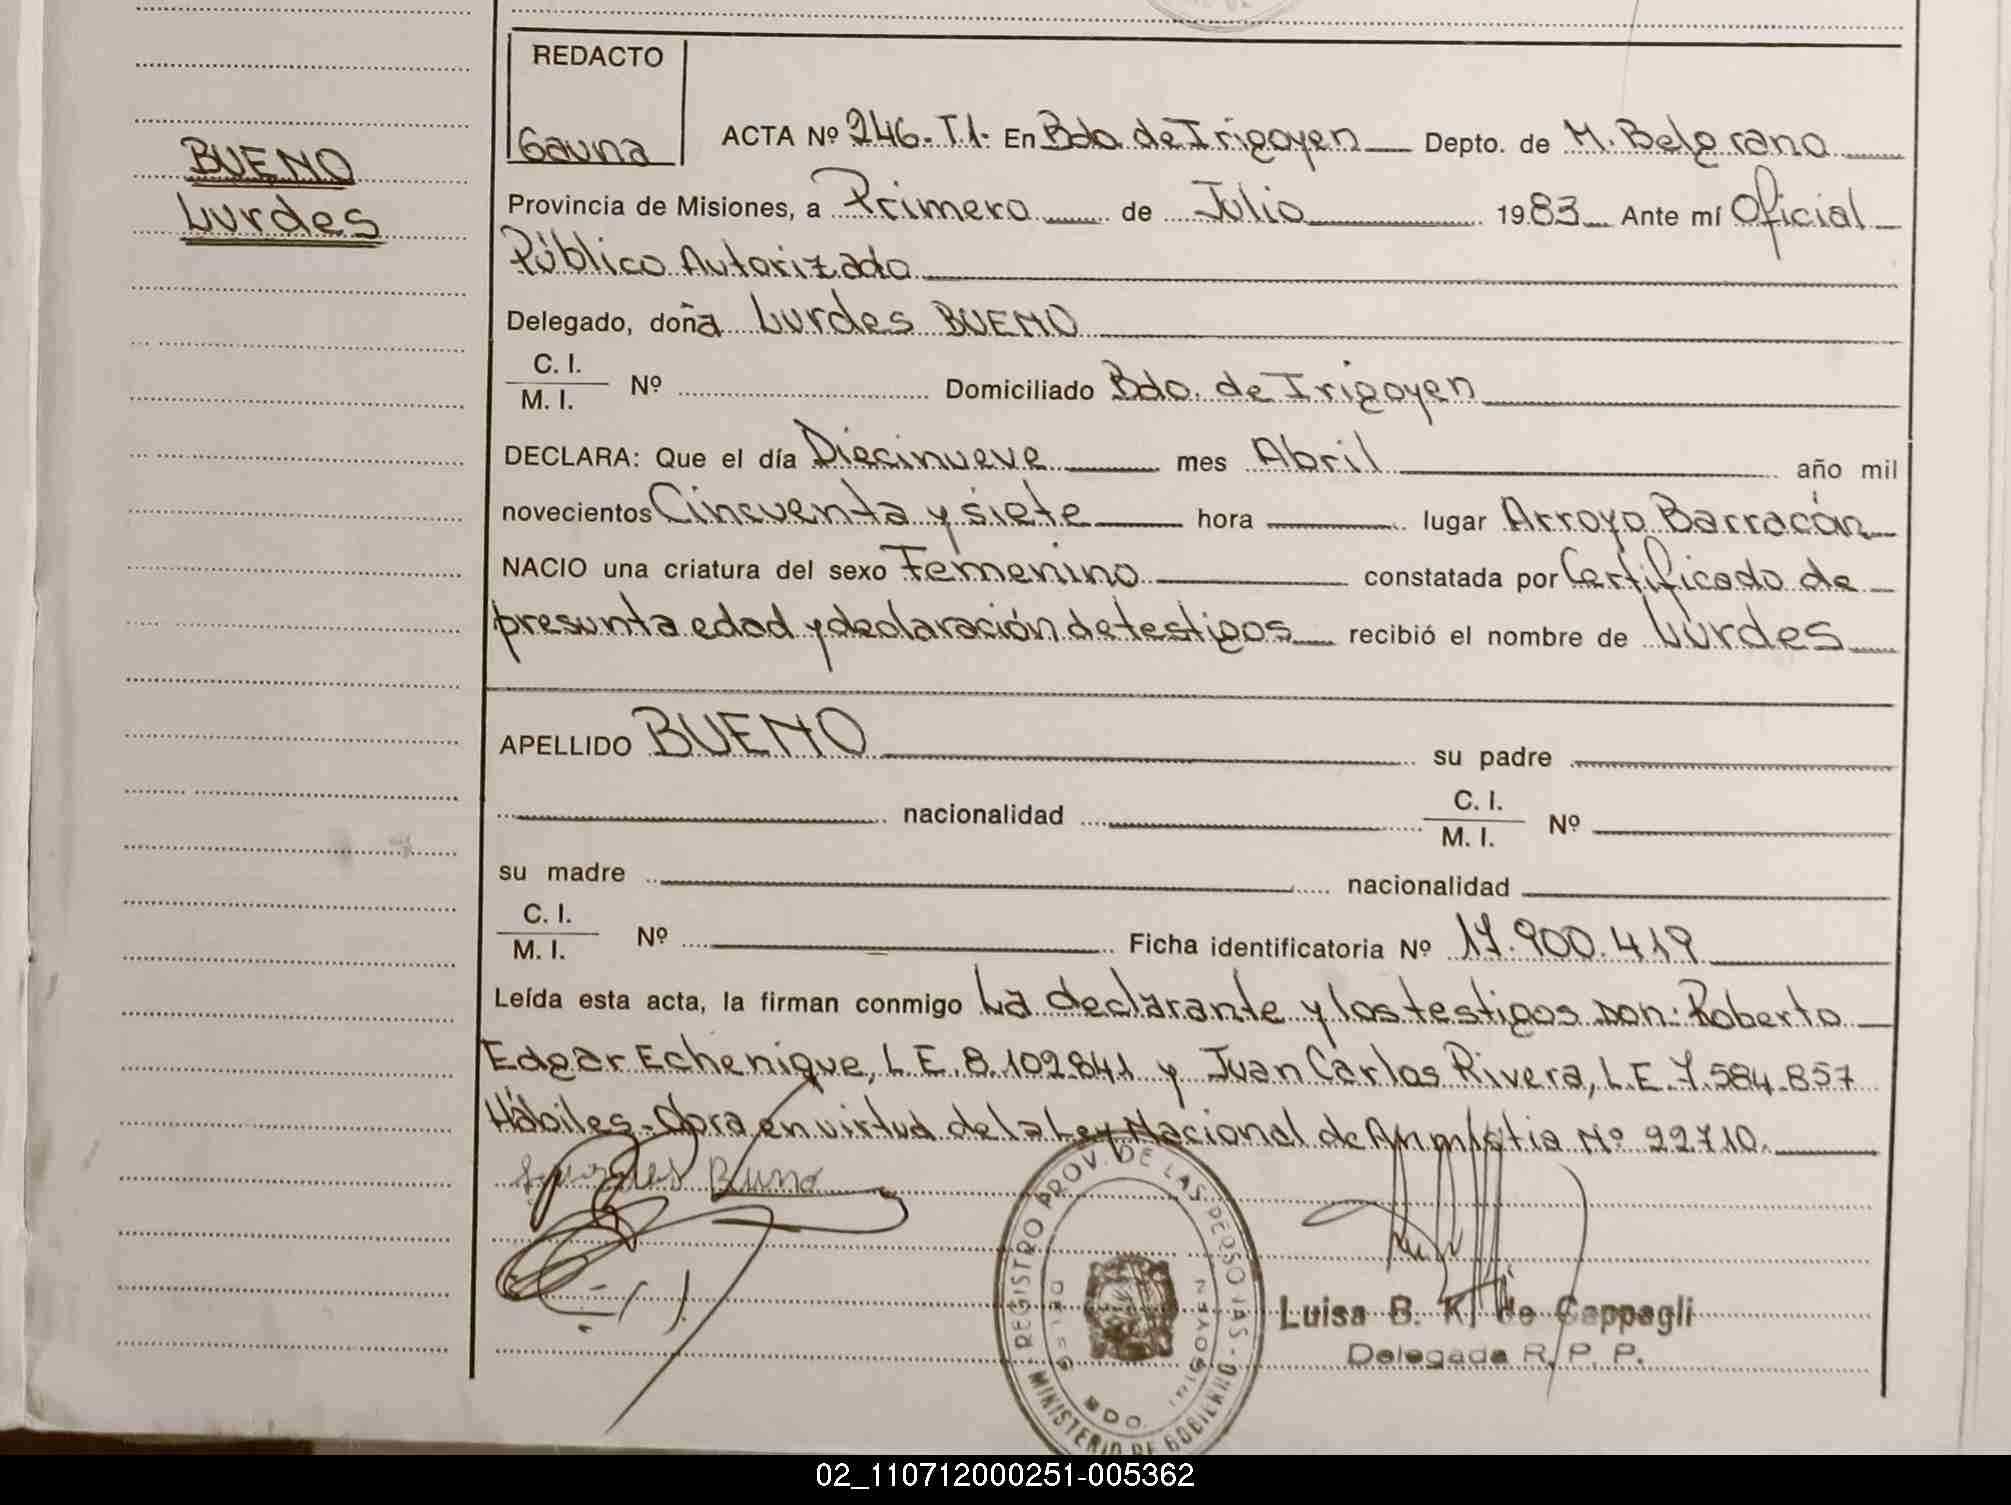 REDACTO
Gauna
BUENO
Lurdes
ACTA Nº 246-T.1- En Bdo. de Irigoyen Depto. de M. Belgrano
Provincia de Misiones, a Primero de Julio 1983 Ante mí Oficial
Público Autorizado
Delegado, doña Lurdes BUENO
C. I.
M. I. Nº Domiciliado Bdo. de Irigoyen
DECLARA: Que el día Diecinueve mes Abril año mil
novecientos Cincuenta y siete hora lugar Arroyo Barracón
NACIO una criatura del sexo Femenino constatada por Certificado de
presunta edad y declaración de testigos recibió el nombre de Lurdes
APELLIDO BUENO su padre
nacionalidad C. I.
M. I. Nº
su madre nacionalidad
C. I.
M. I. Nº Ficha identificatoria Nº 17.900.419
Leída esta acta, la firman conmigo La declarante y los testigos Don: Roberto
Edgar Echenique, L.E. 8.102.841 y Juan Carlos Rivera, L.E. 7.584.857
Hábiles.- Obra en virtud de la Ley Nacional de Amnistia Nº 22710.
Lourdes Bueno
REGISTRO PROV. DE LAS PERSONAS - MINISTERIO DE GOBIERNO
BDO. IRIGOYEN
Luisa B. K. de Cappagli
Delegada R. P. P.
02_110712000251-005362